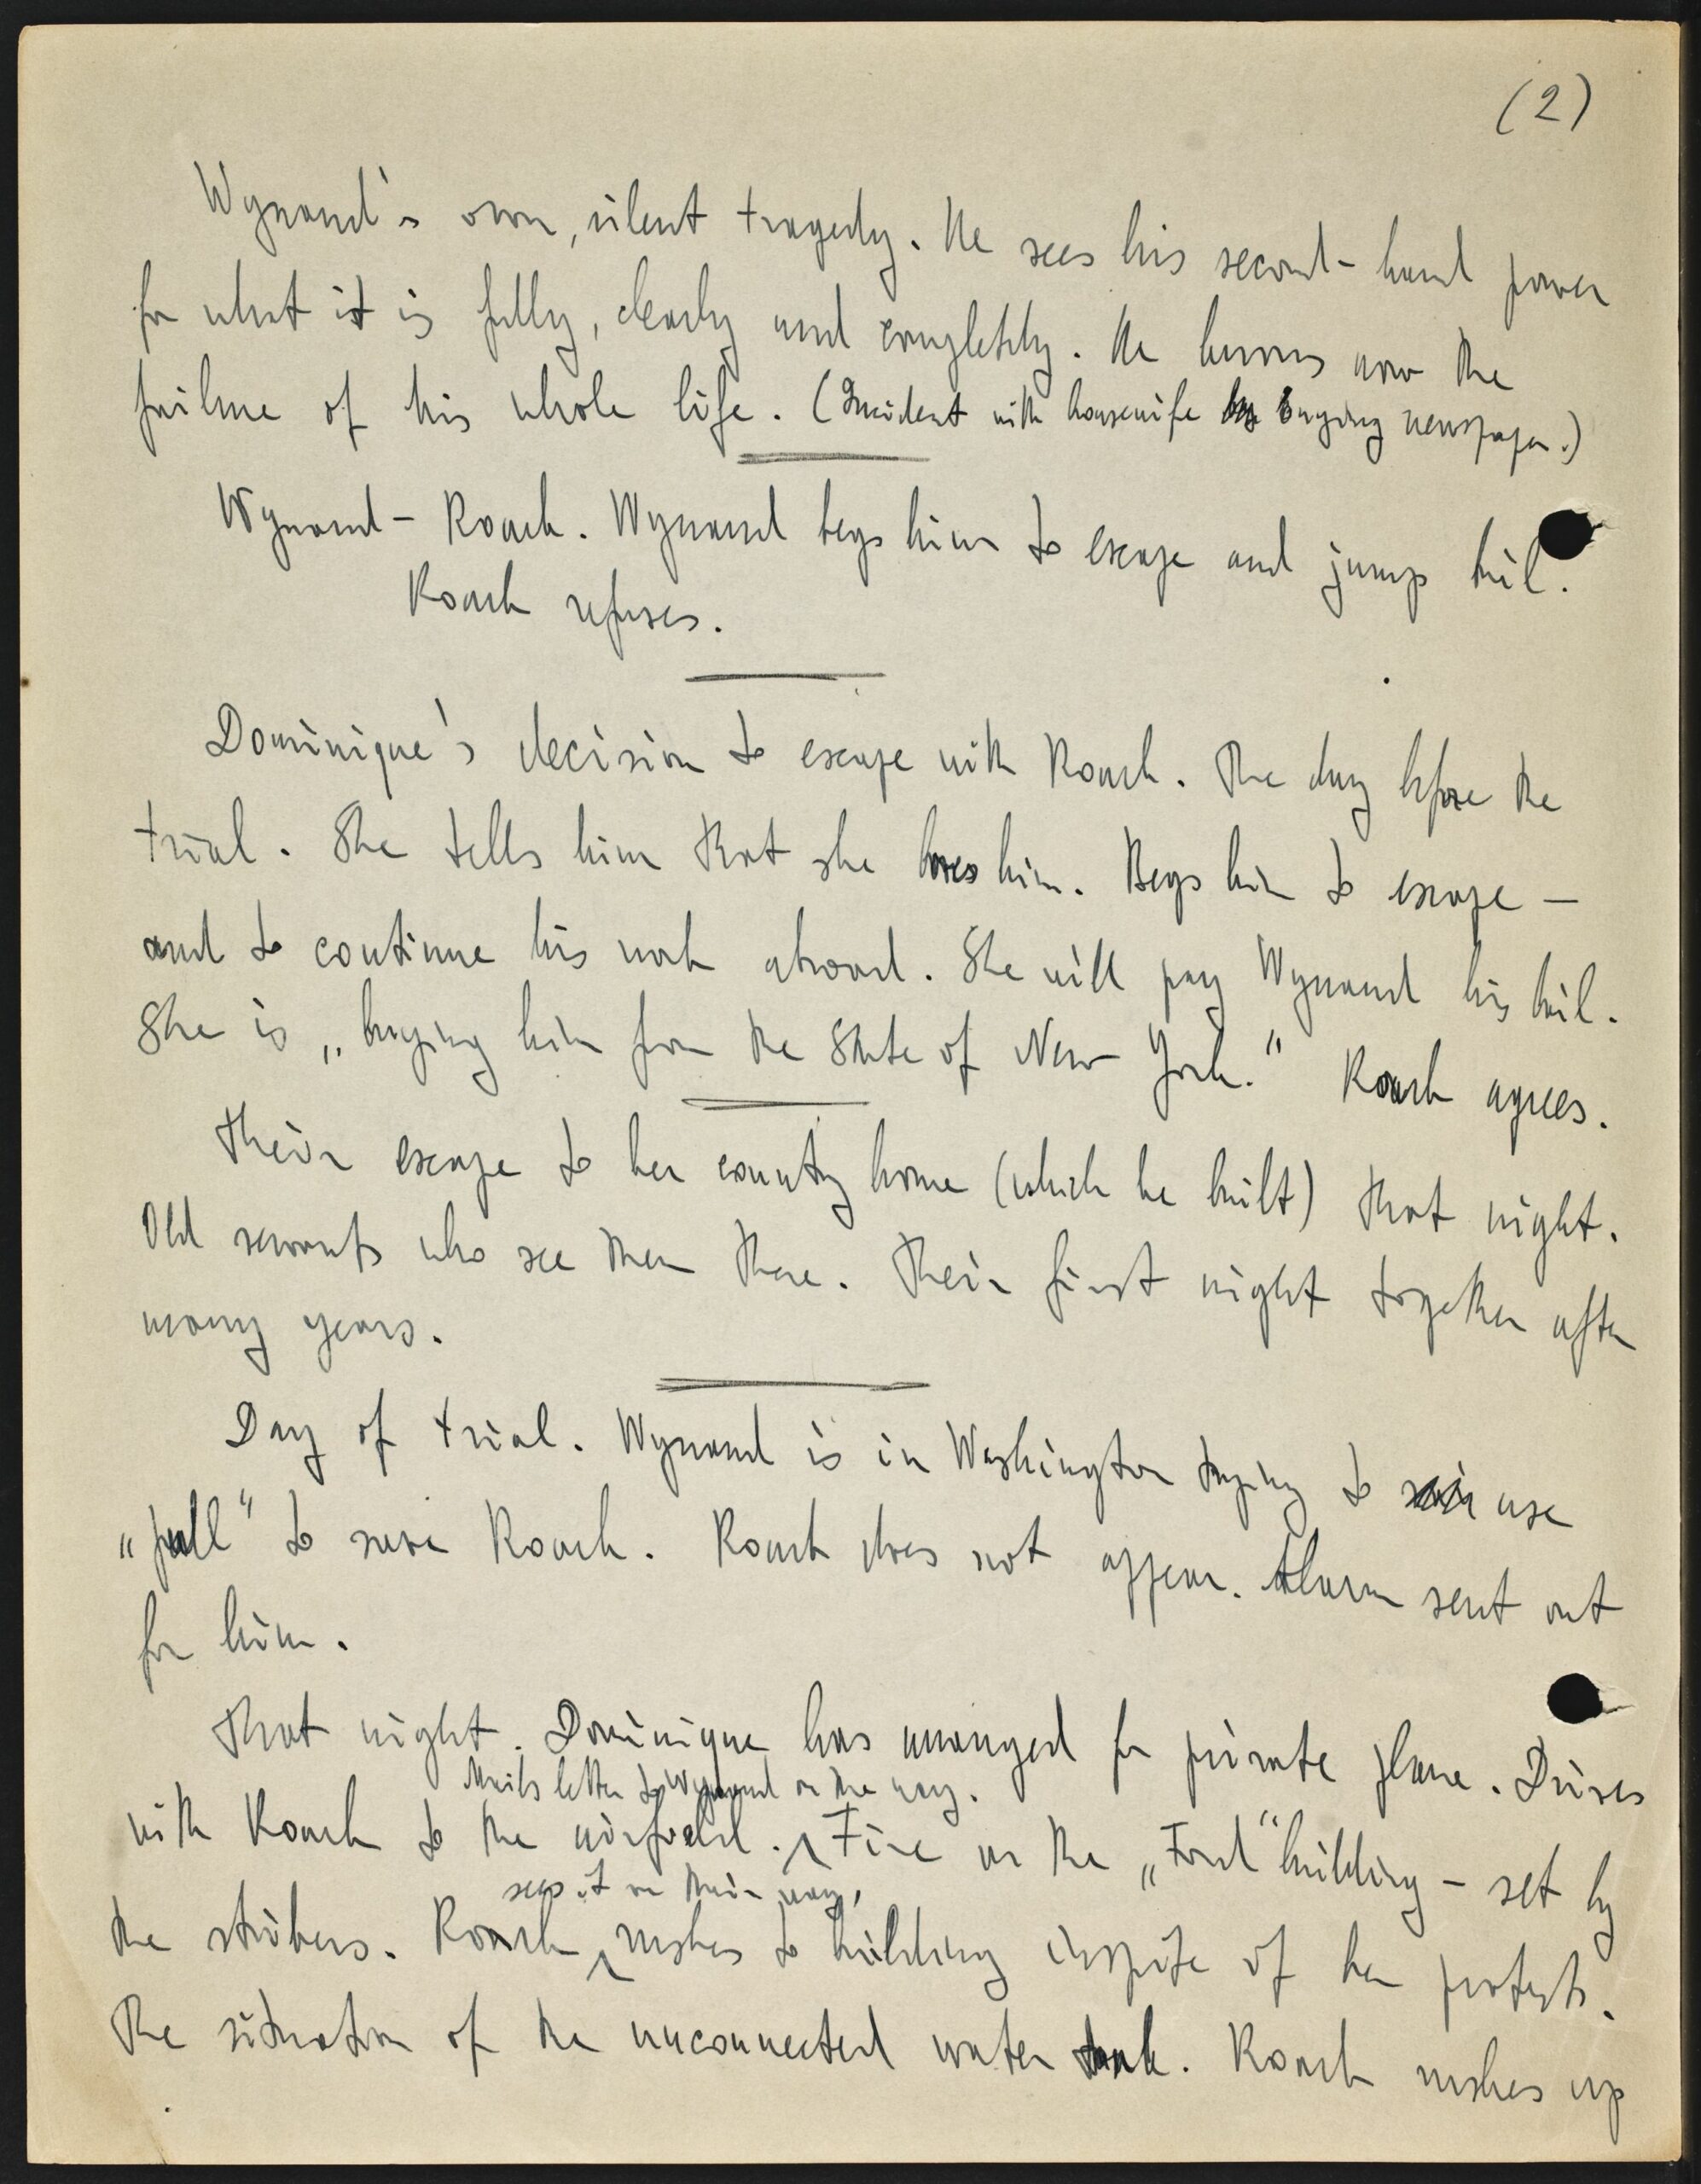 (2)
Wynand's own, silent tragedy. He sees his second-hand power
for what it is fully, clearly and completely. He knows now the
failure of his whole life. (Incident with housewife buying newspaper.)
Wynand - Roark. Wynand begs him to escape and jump bail.
Roark refuses.
Dominique's decision to escape with Roark. The day before the
trial. She tells him that she loves him. Begs him to escape —
and to continue his work abroad. She will pay Wynand his bail.
She is „buying him from the State of New York." Roark agrees.
Their escape to her country home (which he built) that night.
Old servants who see them there. Their first night together after
many years.
Day of trial. Wynand is in Washington trying to use
"pull" to save Roark. Roark does not appear. Alarm sent out
for him.
That night. Dominique has arranged for private plane. Drives
Mails letter to Wynand on the way.
with Roark to the airfield. Fire in the „Ford" building — set by
sees it on their way,
the strikers. Roark rushes to building inspite of her protests.
The situation of the unconnected water tank. Roark rushes up